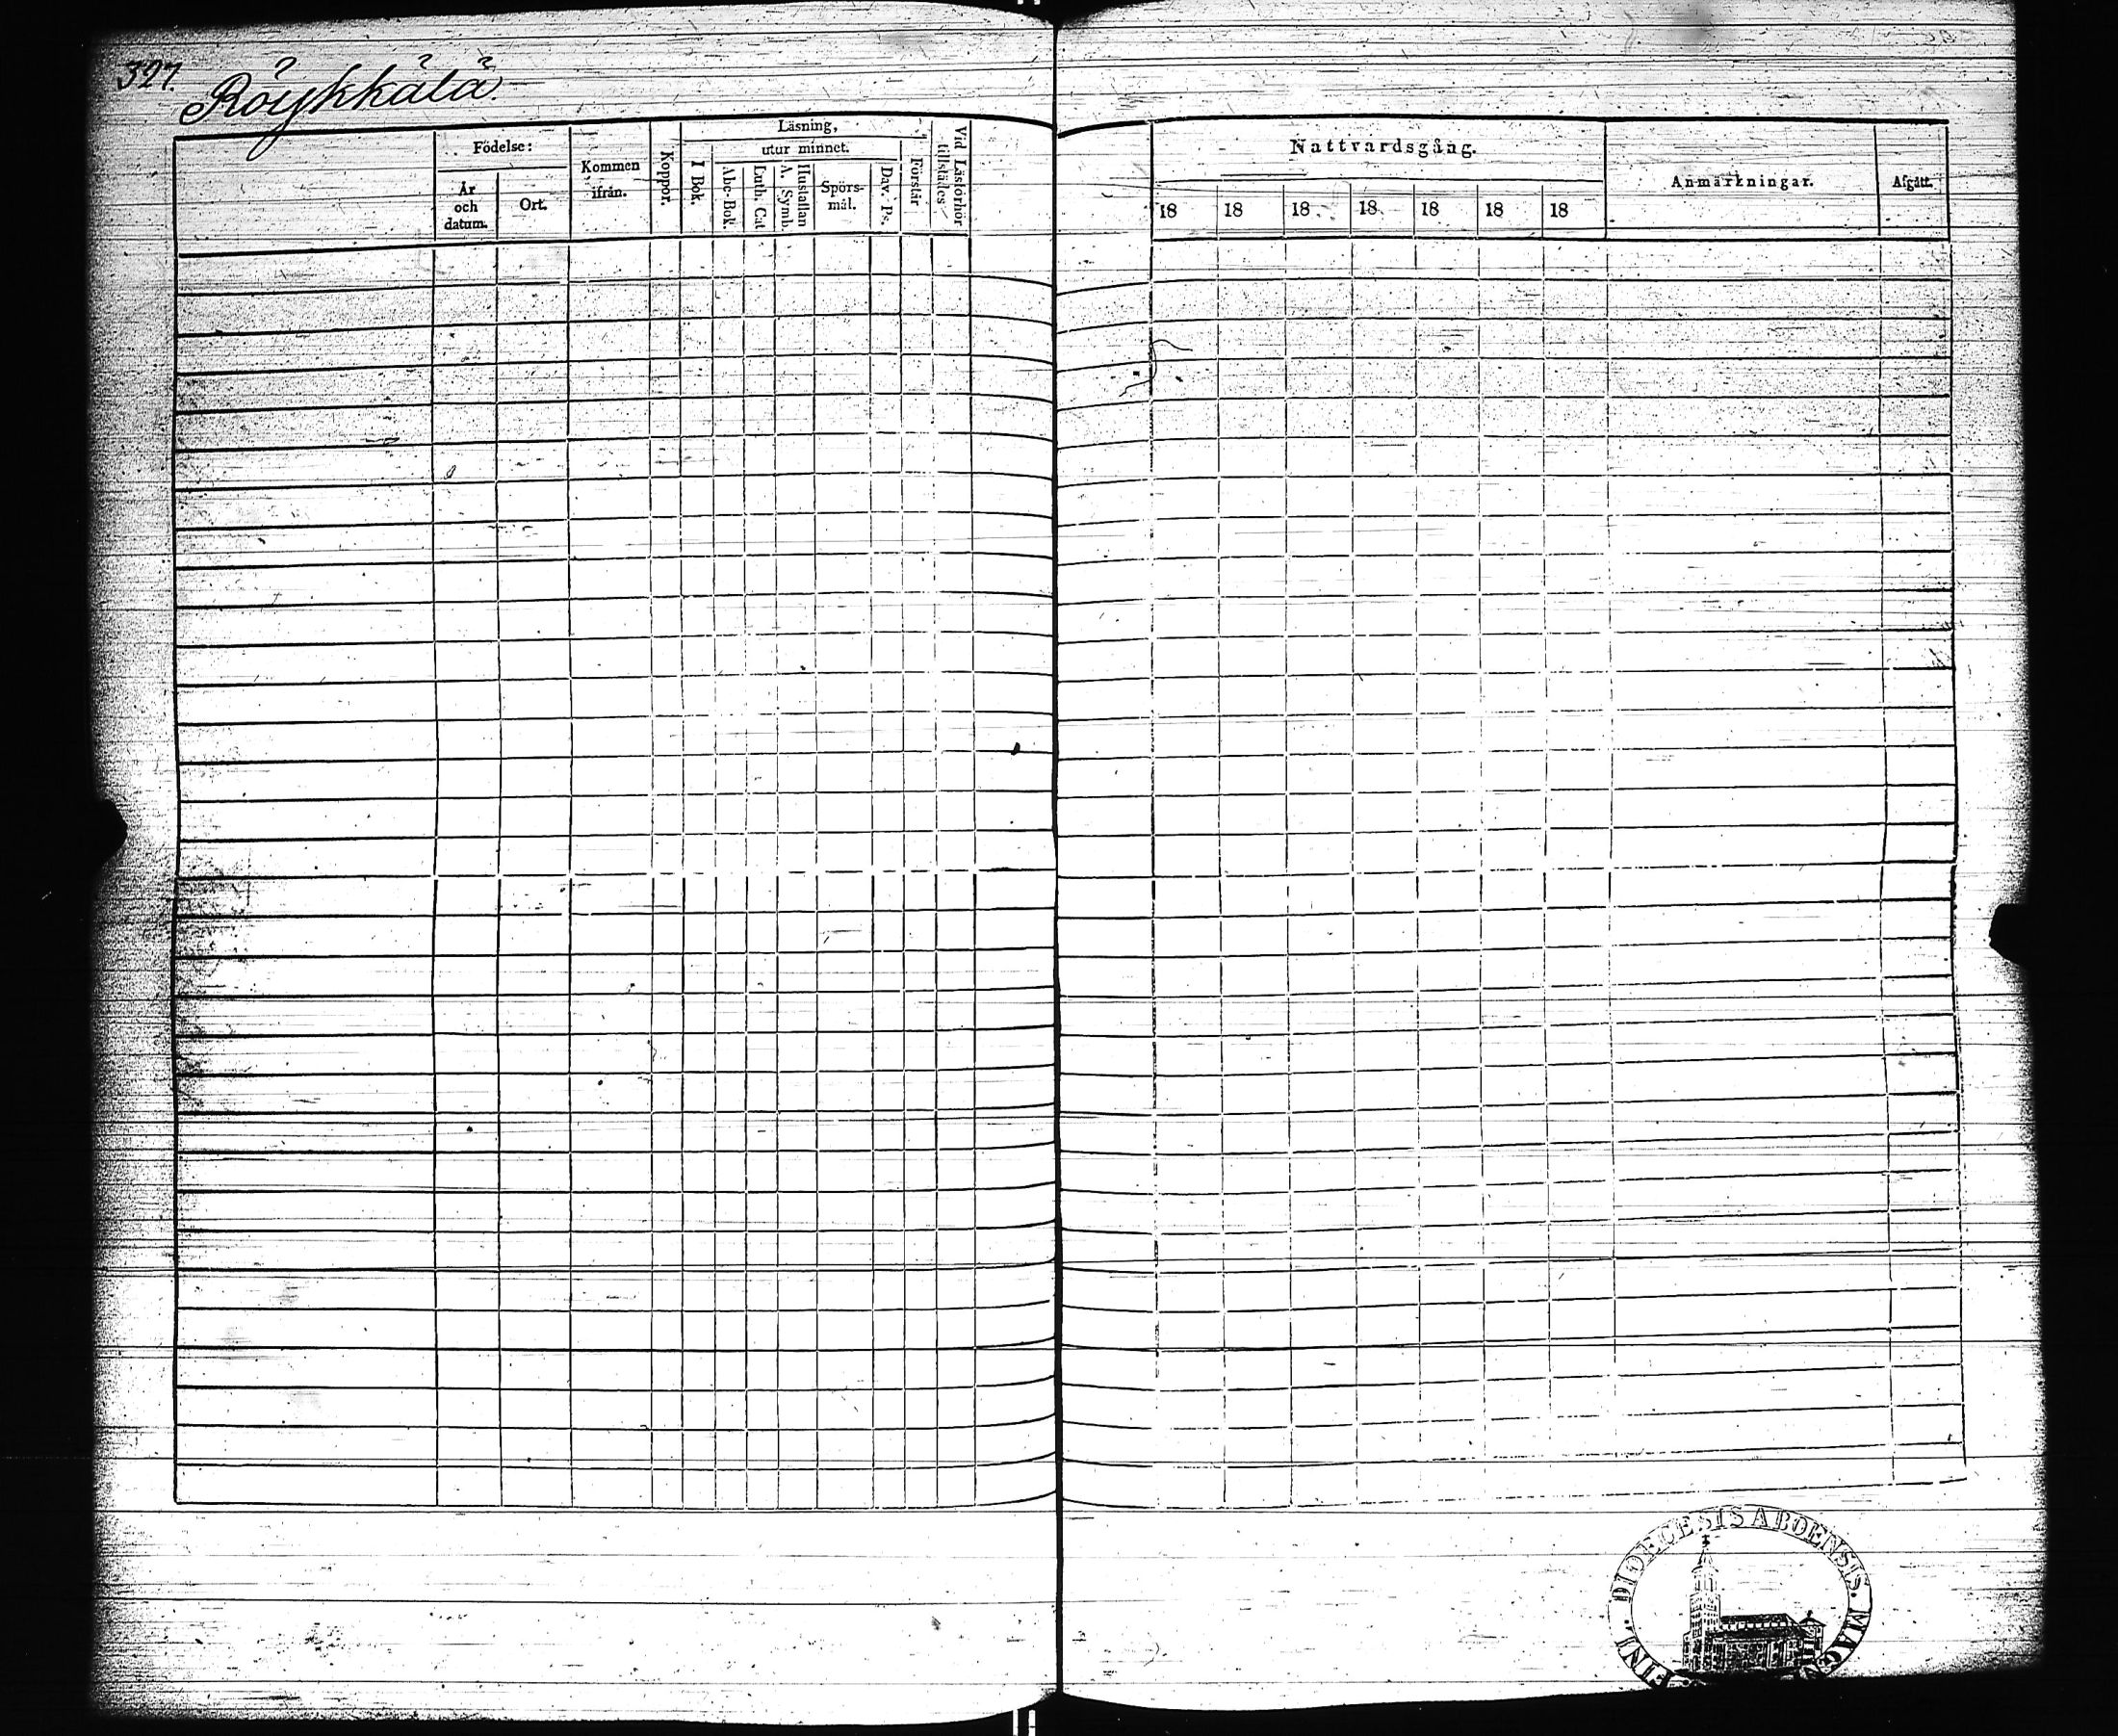 327.
Röykkälä.
Födelse:
År och datum.
Ort.
Kommen ifrån.
Koppor.
Läsning,
utur minnet.
I Bok.
Abc-Bok.
Luth. Cat
Hustaflan A. Symb.
Spörs-mål.
Dav. Ps.
Förstår
Vid Läsförhör tillstädes
Nattvardsgång.
18 18 18 18 18 18 18
Anmärkningar.
Afgått.
DIOECESIS ABOENSIS. MAGN
FINL.